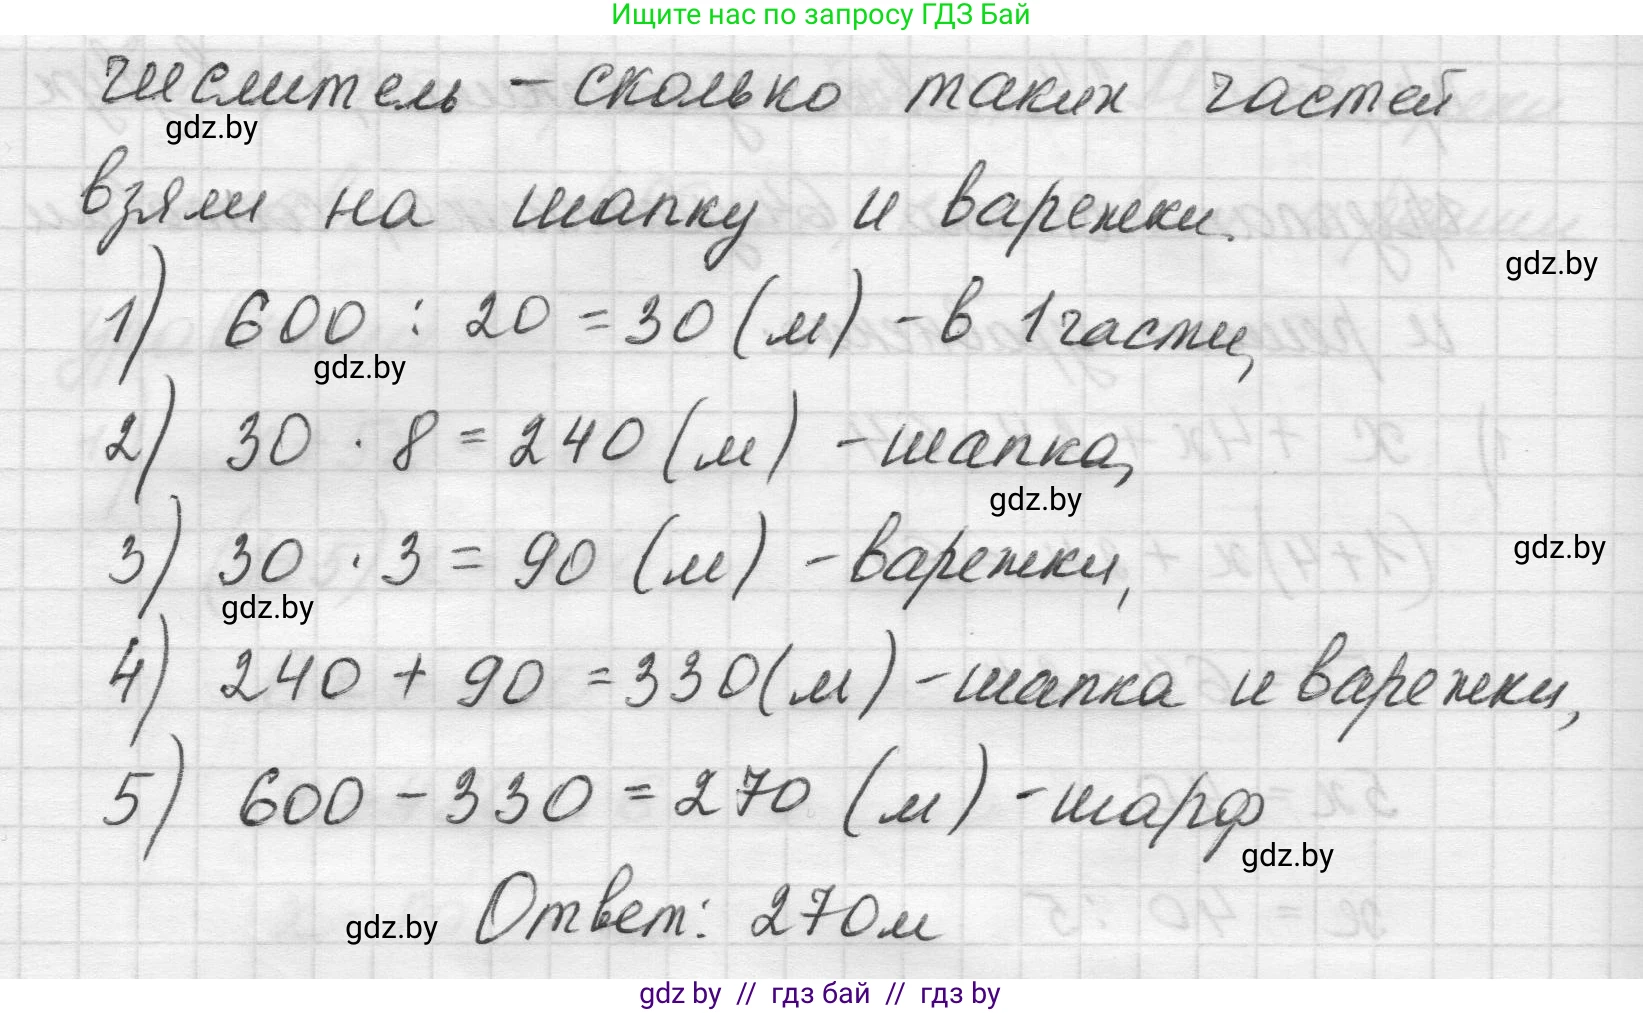 Ищите нас по запросу ГДЗ Бай
числитель - сколько таких частей
gdz.by
взяли на шапку и варежки.
gdz.by
1) 600 : 20 = 30 (м) - в 1 части,
gdz.by
2) 30 · 8 = 240 (м) - шапка,
gdz.by
3) 30 · 3 = 90 (м) - варежки,
gdz.by
gdz.by
4) 240 + 90 = 330 (м) - шапка и варежки,
5) 600 - 330 = 270 (м) - шарф
gdz.by
Ответ: 270м
gdz.by
gdz by // гдз бай // гдз by